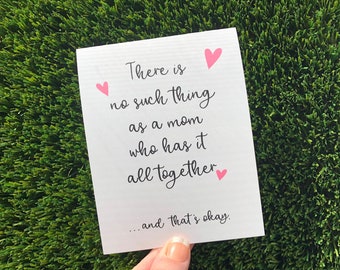 There is
no such thing
as a mom
who has it
all together
...and that's okay.